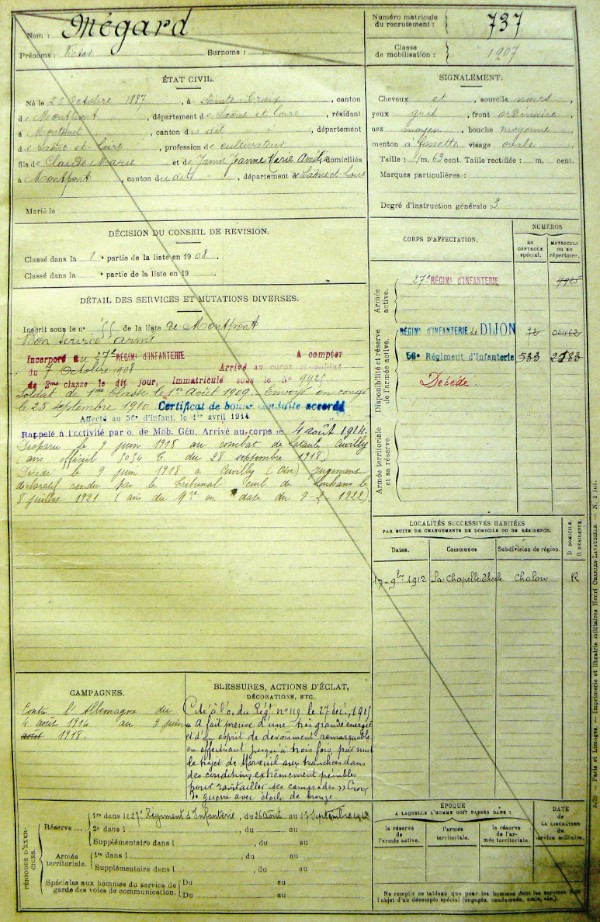 Nom : Mégard
Prénoms : Victor Surnoms :
Numéro matricule
du recrutement : 737
Classe
de mobilisation : 1907
ÉTAT CIVIL.
Né le 2 Octobre 1887, à Sainte Croix, canton
de Montpont, département de Saône et Loire, résidant
à Montpont, canton du dit, département
de Saône et Loire, profession de cultivateur
fils de Claude Marie et de Jeanne Marie domiciliés
à Montpont, canton du dit, département de Saône et Loire
Marié le
SIGNALEMENT.
Cheveux et sourcils noirs
yeux gris front ordinaire
nez moyen bouche moyenne
menton à fossette visage ovale
Taille : 1 m. 63 cent. Taille rectifiée : m. cent.
Marques particulières :
Degré d'instruction générale 3
DÉCISION DU CONSEIL DE RÉVISION.
Classé dans la 1e partie de la liste en 1908.
Classé dans la e partie de la liste en 19
DÉTAIL DES SERVICES ET MUTATIONS DIVERSES.
Inscrit sous le n° 55 de la liste de Montpont
Bon service armé
Incorporé au 27e RÉGIMENT D'INFANTERIE à compter
du 7 Octobre 1908 Arrivé au corps et soldat
de 2me classe le dit jour, immatriculé sous le N° 9925
Soldat de 1re Classe le 1er Août 1909. Envoyé en congé
le 25 septembre 1910 Certificat de bonne conduite accordé
Affecté au 56e d'infant. le 1er avril 1914
Rappelé à l'activité par o. de Mob. Gén. Arrivé au corps le 4 août 1914.
Disparu le 9 juin 1918 au combat de Cuvilly
(avis officiel 5054 C. du 28 septembre 1918)
Décédé le 9 juin 1918 à Cuvilly (Oise) Jugement
déclaratif rendu par le Tribunal Civil de Louhans le
8 juillet 1921 (avis du 9 en date du 9. 2. 1922)
CORPS D'AFFECTATION.
NUMÉROS
AU CONTROLE spécial.
MATRICULE OU AU répertoire.
Armée active.
27e RÉGIMENT D'INFANTERIE 9925
Disponibilité et réserve de l'armée active.
RÉGIMENT D'INFANTERIE de DIJON
56e Régiment d'Infanterie 533
Décédé
Armée territoriale et sa réserve.
LOCALITÉS SUCCESSIVES HABITÉES
PAR SUITE DE CHANGEMENTS DE DOMICILE OU DE RÉSIDENCE.
Dates. Communes Subdivision de région. D. DOMICILE. R. RÉSIDENCE.
17-9bre 1912 La Chapelle Thècle Chalon R
CAMPAGNES.
Contre l'Allemagne du
4 août 1914 au 9 juin
août 1918
BLESSURES, ACTIONS D'ÉCLAT,
DÉCORATIONS, ETC.
Cité à l'o. du Régt n° 119 le 27 1915
"a fait preuve d'une très grande énergie
et d'un esprit de dévouement remarquable
en effectuant jusqu'à trois fois par nuit
le trajet de Maricourt aux tranchées dans
des conditions extrêmement pénibles
pour ravitailler ses camarades" Croix
de guerre avec étoile de bronze
PÉRIODES D'EXERCICES.
Réserve
1re dans le 27e Régiment d'Infanterie, du 26 août au 13 Septembre
2e dans l du au
Supplémentaire dans l du au
Armée territoriale.
1re dans l du au
Supplémentaire dans l du au
Spéciales aux hommes du service de
garde des voies de communication.
Du au
Du au
ÉPOQUE
A LAQUELLE L'HOMME DOIT PASSER DANS :
la réserve de l'armée active. l'armée territoriale. la réserve de l'armée territoriale.
DATE
DE LA LIBÉRATION
du service militaire.
Ne remplir ce tableau que pour les hommes dont les services font
l'objet d'un décompte spécial (engagés, condamnés, omis, etc.).
Paris et Limoges. — Imprimerie et librairie militaires Henri CHARLES-LAVAUZELLE